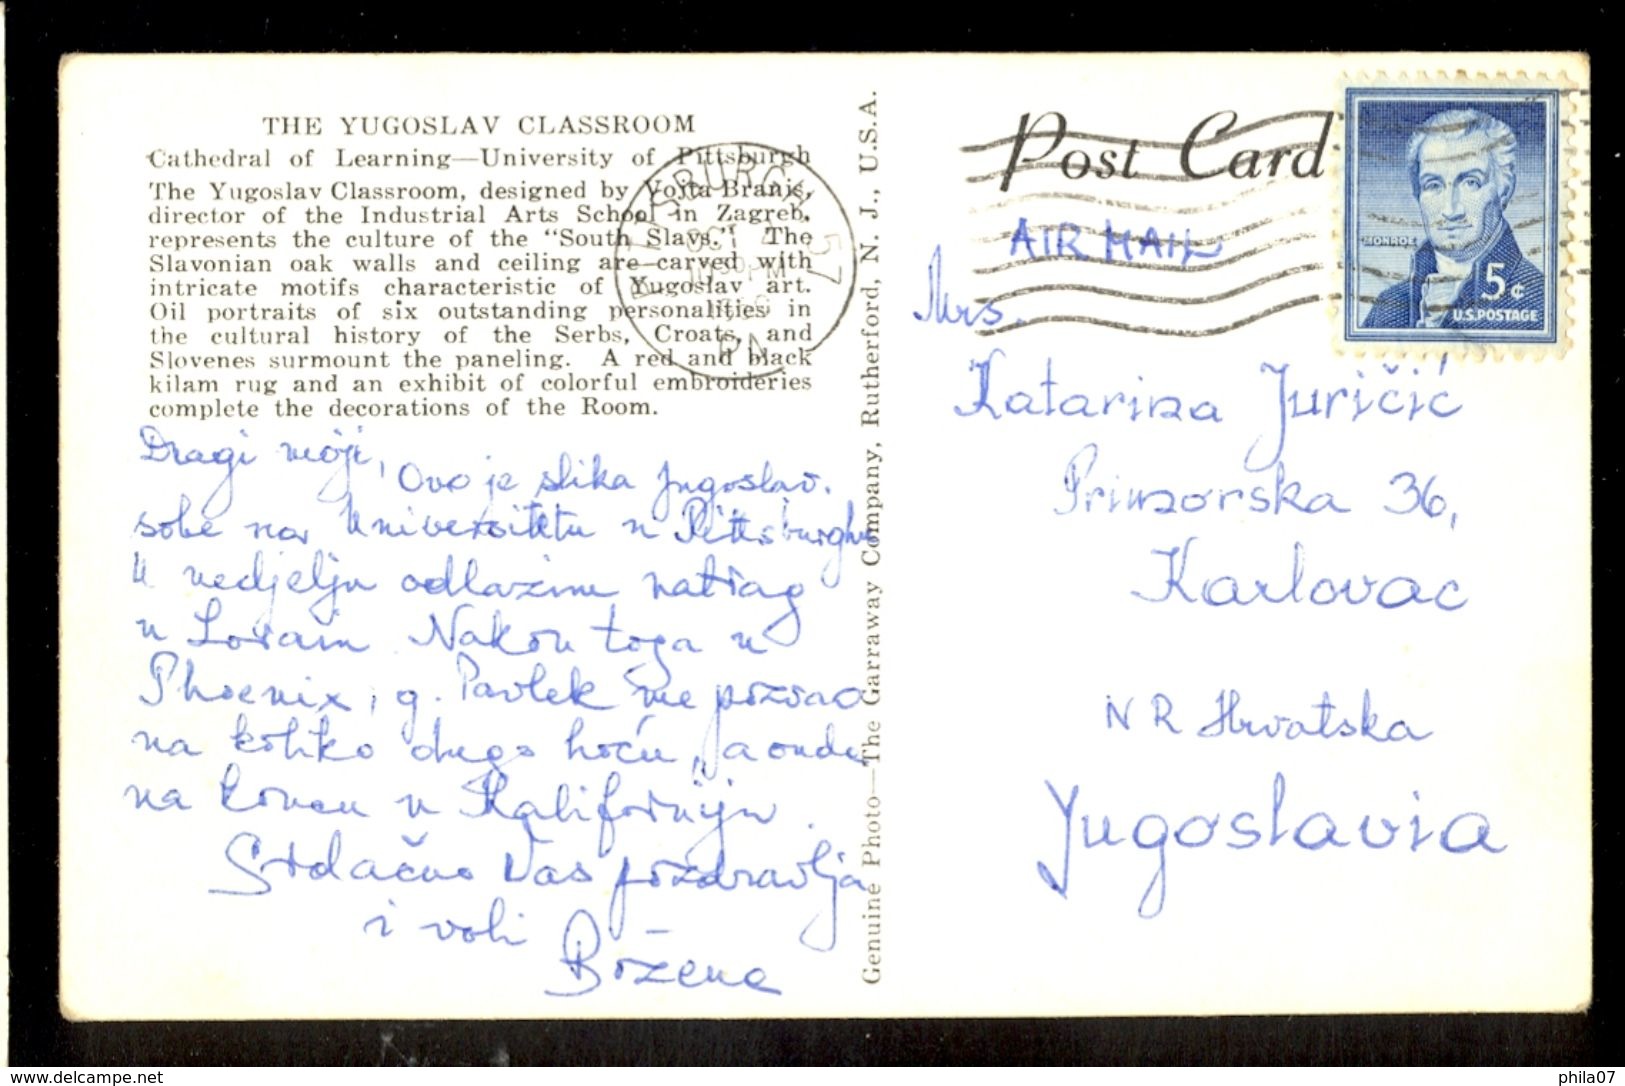 THE YUGOSLAV CLASSROOM
Cathedral of Learning—University of Pittsburgh
The Yugoslav Classroom, designed by Vojta Braniš,
director of the Industrial Arts School in Zagreb,
represents the culture of the "South Slavs." The
Slavonian oak walls and ceiling are carved with
intricate motifs characteristic of Yugoslav art.
Oil portraits of six outstanding personalities in
the cultural history of the Serbs, Croats, and
Slovenes surmount the paneling. A red and black
kilam rug and an exhibit of colorful embroideries
complete the decorations of the Room.
Dragi moji,
Ovo je slika Jugoslav.
sobe na Univerzitetu u Pittsburghu
U nedjelju odlazim natrag
u Lorain. Nakon toga u
Phoenix, g. Pavlek me pozvao
na koliko dugo hoću, a onda
na koncu u Kaliforniju.
Srdačno Vas pozdravlja
i voli
Božena
Genuine Photo—The Garraway Company, Rutherford, N. J., U.S.A.
PITTSBURGH
OCT
PM
PA
57
Post Card
AIR MAIL
MONROE
5¢
U.S. POSTAGE
Mrs.
Katarina Juričić
Primorska 36,
Karlovac
NR Hrvatska
Yugoslavia
www.delcampe.net
phila07